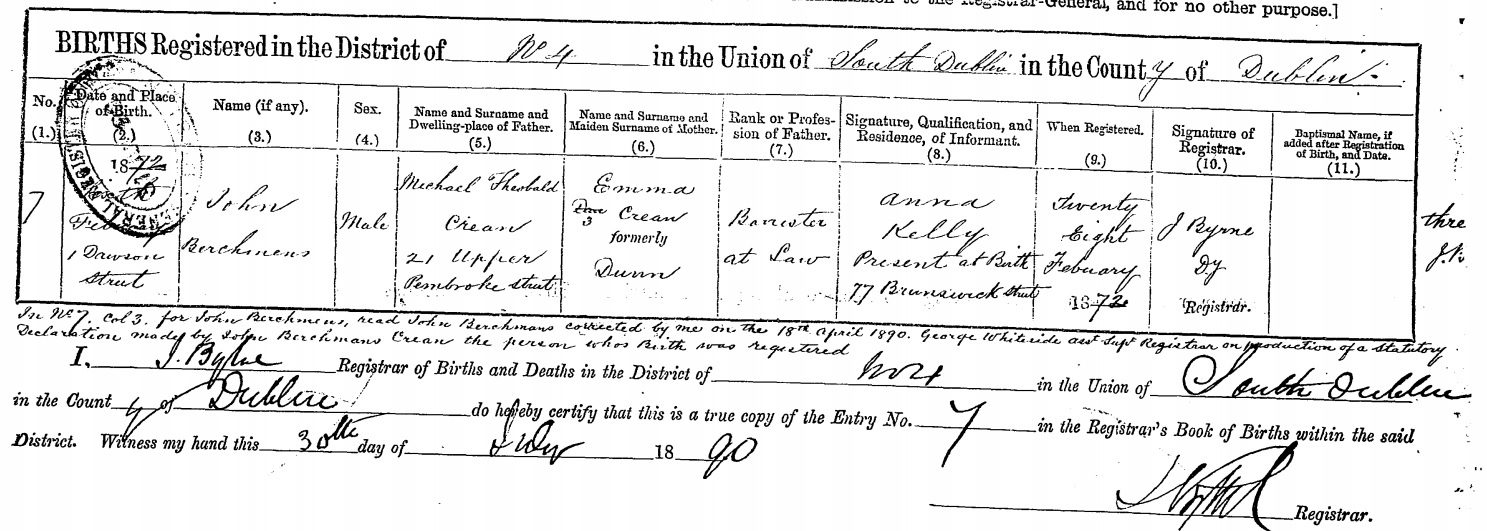 to the Registrar-General, and for no other purpose.]
BIRTHS Registered in the District of No 4 in the Union of South Dublin in the County of Dublin.
No. (1.) Date and Place of Birth. (2.) Name (if any). (3.) Sex. (4.) Name and Surname and Dwelling-place of Father. (5.) Name and Surname and Maiden Surname of Mother. (6.) Rank or Profession of Father. (7.) Signature, Qualification, and Residence, of Informant. (8.) When Registered. (9.) Signature of Registrar. (10.) Baptismal Name, if added after Registration of Birth, and Date. (11.)
7
1872
1 Dawson
Street
John
Berchmens
Male
Michael Theobald
Crean
21 Upper
Pembroke street
Emma
3 Crean
formerly
Dunn
Barrister
at Law
Anna
Kelly
Present at Birth
77 Brunswick Street
Twenty
Eight
Febuary
1872
J Byrne
Dy
Registrar.
thre
In No 7. Col 3. for John Berchmens, read John Berchmans corrected by me on the 18th April 1890. George Whiteside asst Supt Registrar on production of a Statutory
Declaration made by John Berchmans Crean the person whos Birth was registered
I, J. Byrne Registrar of Births and Deaths in the District of No 4 in the Union of South Dublin
in the County of Dublin do hereby certify that this is a true copy of the Entry No. 7 in the Registrar's Book of Births within the said
District. Witness my hand this 30th day of July 1890
Registrar.